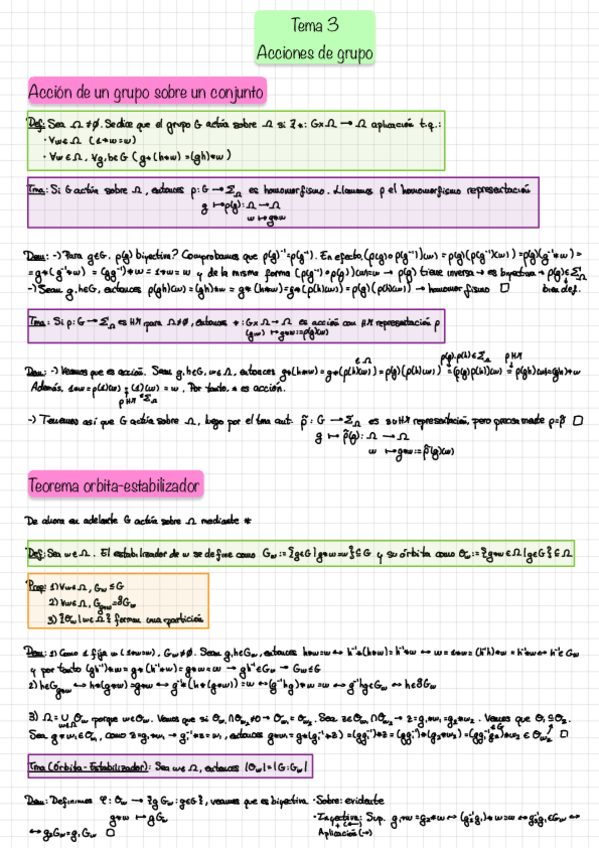 Tema 3
Acciones de grupo
Acción de un grupo sobre un conjunto
Def: Sea Ω ≠ ∅. Se dice que el grupo G actúa sobre Ω si ∃ * : G×Ω → Ω aplicación t.q.:
· ∀w∈Ω (1*w=w)
· ∀w∈Ω, ∀g,h∈G (g*(h*w)=(gh)*w)
Tma: Si G actúa sobre Ω, entonces ρ: G → Σ_Ω es homomorfismo. Llamamos ρ el homomorfismo representación
g ↦ ρ(g): Ω → Ω
w ↦ g*w
Dem: -) Para g∈G. ρ(g) biyectiva? Comprobamos que ρ(g)⁻¹=ρ(g⁻¹). En efecto, (ρ(g)∘ρ(g⁻¹))(w) = ρ(g)(ρ(g⁻¹)(w)) = ρ(g)(g⁻¹*w) =
= g*(g⁻¹*w) = (gg⁻¹)*w = 1*w = w y de la misma forma (ρ(g⁻¹)∘ρ(g))(w)=w → ρ(g) tiene inversa → es biyectiva → ρ(g)∈Σ_Ω
-) Sean g,h∈G, entonces ρ(gh)(w) = (gh)*w = g*(h*w) = g*(ρ(h)(w)) = ρ(g)(ρ(h)(w)) → homomorfismo □ bien def.
Tma: Si ρ: G → Σ_Ω es HM para Ω≠∅, entonces * : G×Ω → Ω es acción con HM representación ρ
(g,w) ↦ g*w:=ρ(g)(w)
∈Ω ρ(g),ρ(h)∈Σ_Ω ρ HM
Dem: -) Veamos que es acción. Sean g,h∈G, w∈Ω, entonces g*(h*w) = g*(ρ(h)(w)) = ρ(g)(ρ(h)(w)) = (ρ(g)ρ(h))(w) = ρ(gh)(w)=(gh)*w
Además, 1*w = ρ(1)(w) = (1)(w) = w. Por tanto, * es acción.
ρ HM ∈Σ_Ω
-) Tenemos así que G actúa sobre Ω, luego por el tma ant. ρ̃ : G → Σ_Ω es su HM representación, pero precisamente ρ=ρ̃ □
g ↦ ρ̃(g): Ω → Ω
w ↦ g*w:=ρ̃(g)(w)
Teorema orbita-estabilizador
De ahora en adelante G actúa sobre Ω mediante *
Def: Sea w∈Ω. El estabilizador de w se define como G_w := {g∈G | g*w=w} ⊆ G y su órbita como O_w := {g*w∈Ω | g∈G} ⊆ Ω
Prop: 1) ∀w∈Ω, G_w ≤ G
2) ∀w∈Ω, G_{g*w} = ᵍG_w
3) {O_w | w∈Ω} forman una partición
Dem: 1) Como 1 fija w (1*w=w), G_w≠∅. Sean g,h∈G_w, entonces h*w=w ↔ h⁻¹*(h*w)=h⁻¹*w ↔ w=1*w=(h⁻¹h)*w = h⁻¹*w ↔ h⁻¹∈G_w
y por tanto (gh⁻¹)*w = g*(h⁻¹*w) = g*w = w → gh⁻¹∈G_w → G_w≤G
2) h∈G_{g*w} ↔ h*(g*w)=g*w ↔ g⁻¹*(h*(g*w)) = w ↔ (g⁻¹hg)*w = w ↔ g⁻¹hg∈G_w ↔ h∈ᵍG_w
3) Ω = ∪_{w∈Ω} O_w porque w∈O_w. Vemos que si O_{w₁}∩O_{w₂}≠∅ → O_{w₁}=O_{w₂}. Sea z∈O_{w₁}∩O_{w₂} → z=g₁*w₁=g₂*w₂. Vemos que O₁⊆O₂.
Sea g*w₁∈O_{w₁}, como z=g₁*w₁ → g₁⁻¹*z=w₁, entonces g*w₁ = g*(g₁⁻¹*z) = (gg₁⁻¹)*z = (gg₁⁻¹)*(g₂*w₂) = (gg₁⁻¹g₂)*w₂ ∈ O_{w₂} □
Tma (Órbita-Estabilizador): Sea w∈Ω, entonces |O_w| = |G:G_w|
Dem: Definimos φ: O_w → {gG_w : g∈G}, veamos que es biyectiva · Sobre: evidente
g*w ↦ gG_w · Inyectiva: Sup. g₁*w = g₂*w ↔ (g₂⁻¹g₁)*w=w ↔ g₂⁻¹g₁∈G_w ↔
↔ g₂G_w=g₁G_w □ Aplicación (→)